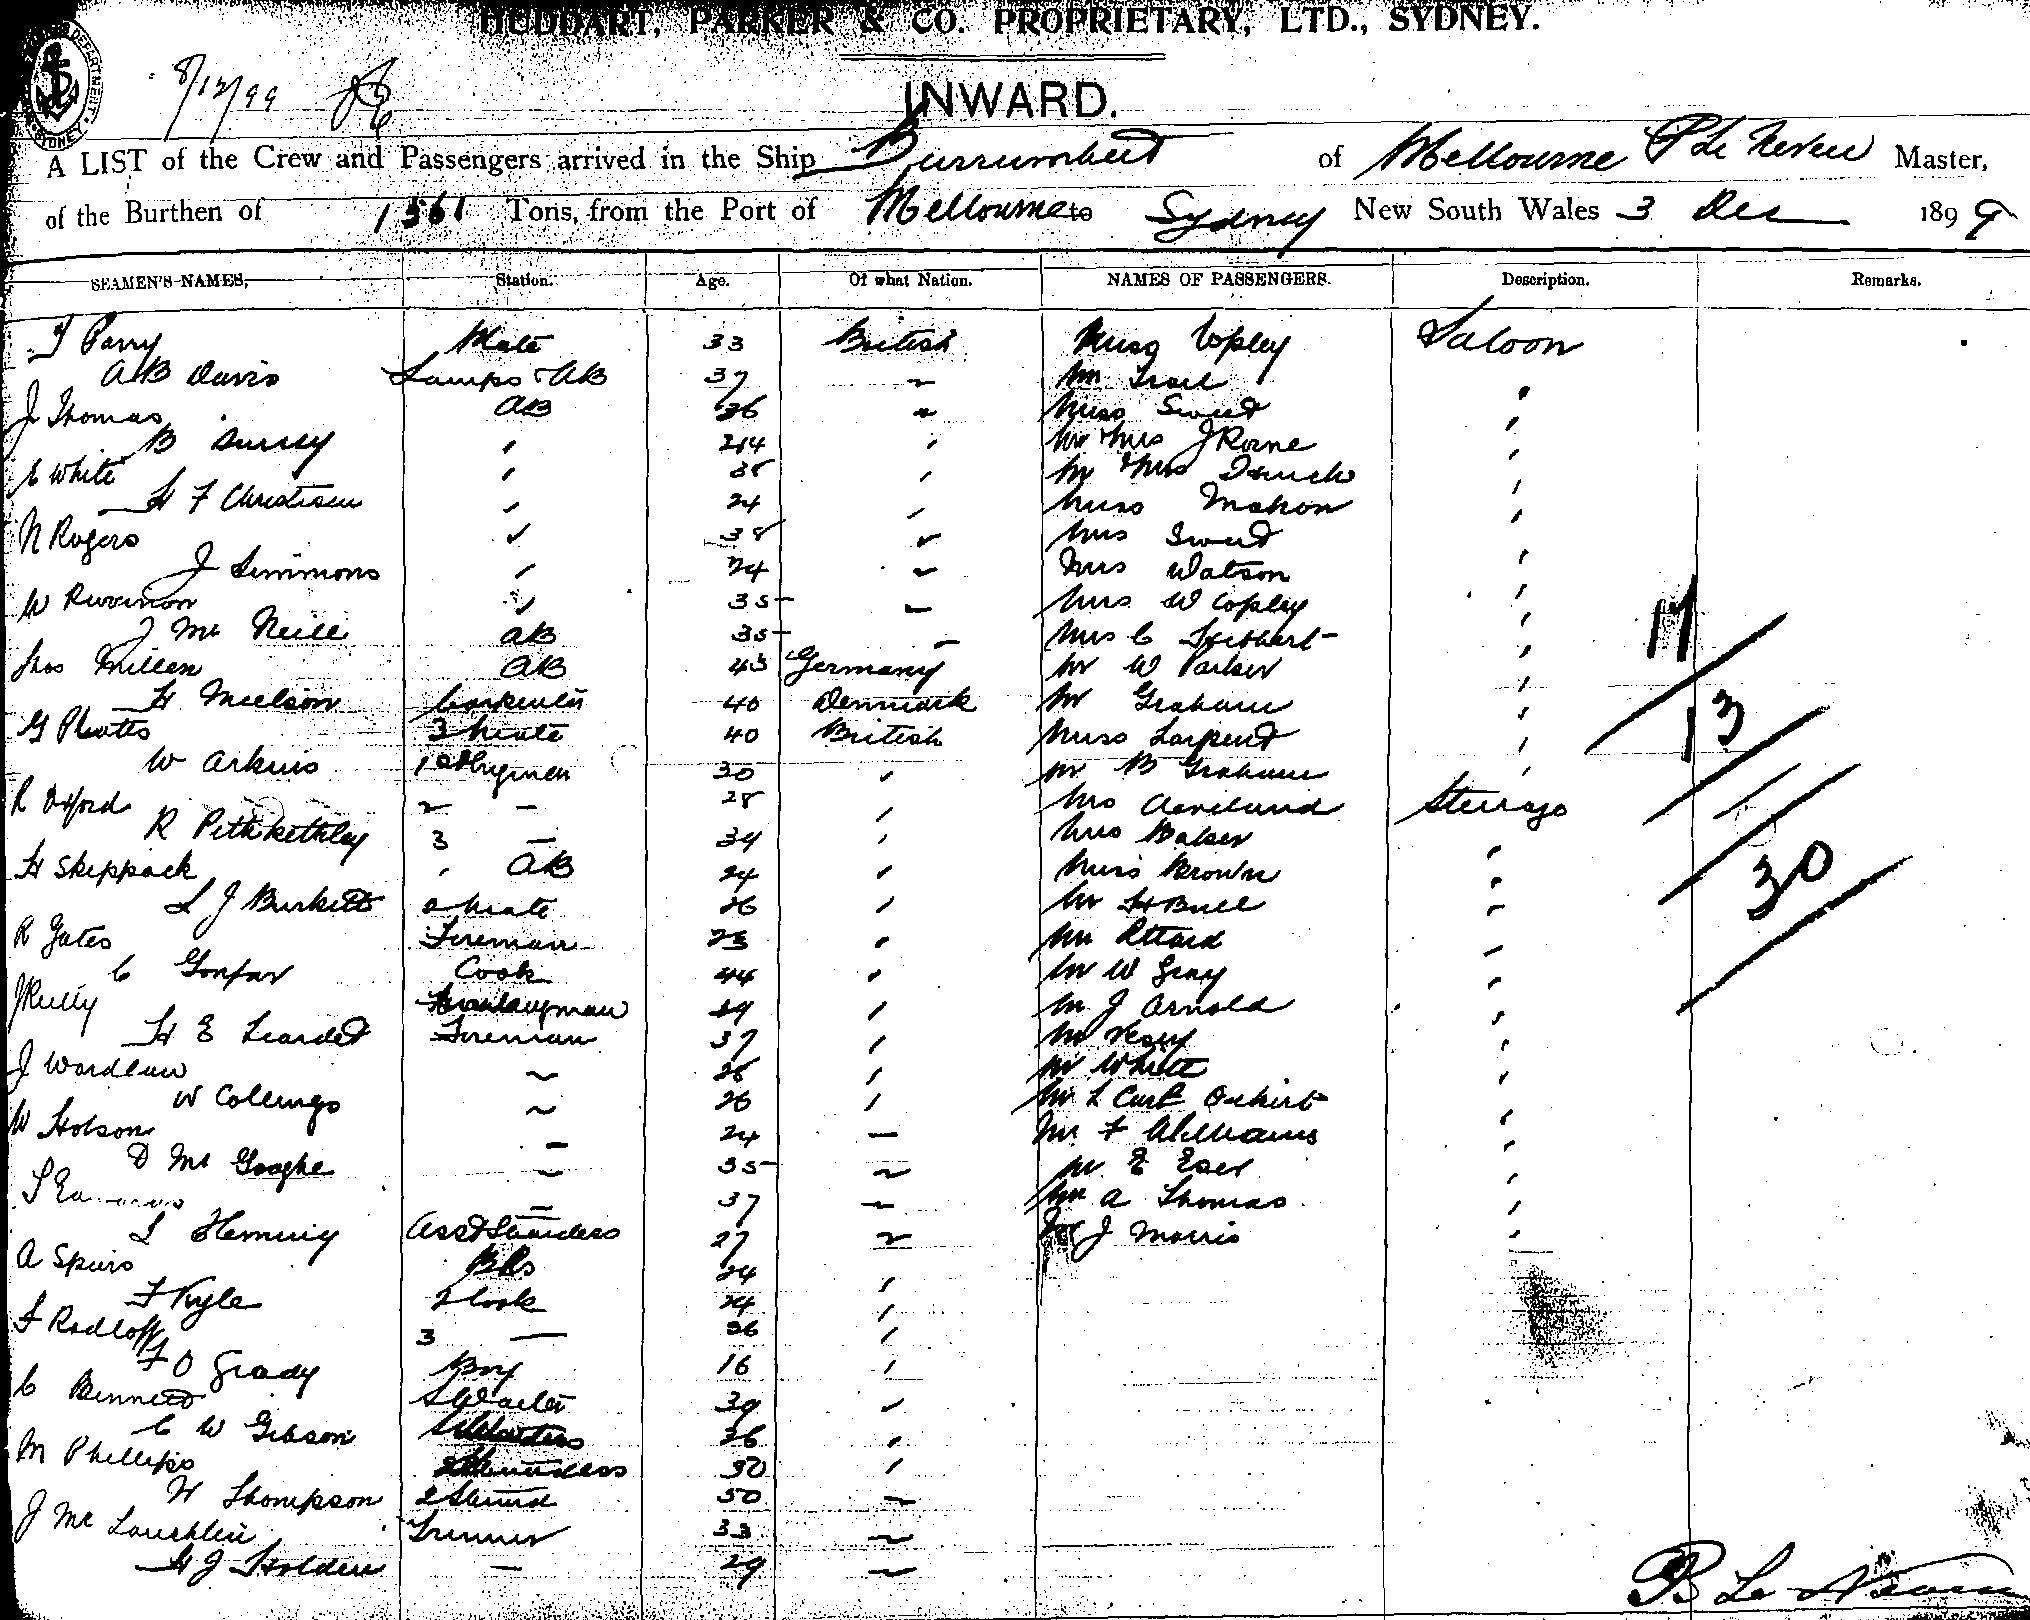 HUDDART, PARKER & CO. PROPRIETARY, LTD., SYDNEY.
8/12/99
INWARD.
A LIST of the Crew and Passengers arrived in the Ship Burrumbeet of Melbourne P Le Neveu Master,
of the Burthen of 1561 Tons, from the Port of Melbourne to Sydney New South Wales 3 Dec 1899
SEAMEN'S NAMES, Station. Age. Of what Nation. NAMES OF PASSENGERS. Description. Remarks.
Parry Mate 33 British Miss Copley Saloon
AB Davis Lamps & AB 37 "
J Thomas AB 36 " Miss Sweet "
B 24 ' Mr & Mrs J Rorne '
E White ' 38 ' Mr & Mrs '
H F Christisen ' 24 ' Miss Mahon '
N Rogers ' 38 ' Mrs Sweet '
J Simmons ' 24 " Mrs Watson '
W ' 35 " Mrs W Copley '
J Mc Neill AB 35 " Mrs C '
Thos Millen AB 43 Germany Mr W Parker '
H Neilson Carpenter 40 Denmark Mr Graham '
G Plutts 3 Mate 40 British Miss Larpent '
W 30 ' Mr B Graham '
R Oxford 2 — 28 ' Mrs Steerage
R Pithkethley 3 — 34 ' Mrs Baker "
H Skeppack ' AB 24 ' Miss Brown "
L J Burkett 2 Mate 26 ' Mr H Bull "
R Gates Fireman 25 ' Mr Attard "
C Cook 44 ' Mr W Gray "
J Reilly 29 ' Mr J Arnold "
H E Leardet Fireman 37 ' Mr '
J Wardlaw " 26 ' Mr White '
W Collings " 26 ' Mr L Carl '
W Hobson " 24 — Mr F Williams '
D Mc " 35 " Mr E '
— 37 " Mr A Thomas '
L Fleming Asst Stewardess 27 " J Morris '
A Spiers 24 '
F Kyle 2 Cook 24 '
F Radloff 3 — 26 '
F O Grady Boy 16 '
C Bennett 39 '
C W Gibson 36 '
M Phillips Stewardess 30 '
W Thompson 2 Steward 50 "
J Mc Laughlin Trimmer 33 "
H J Holden — 29 "
17
13
30
P Le Neveu